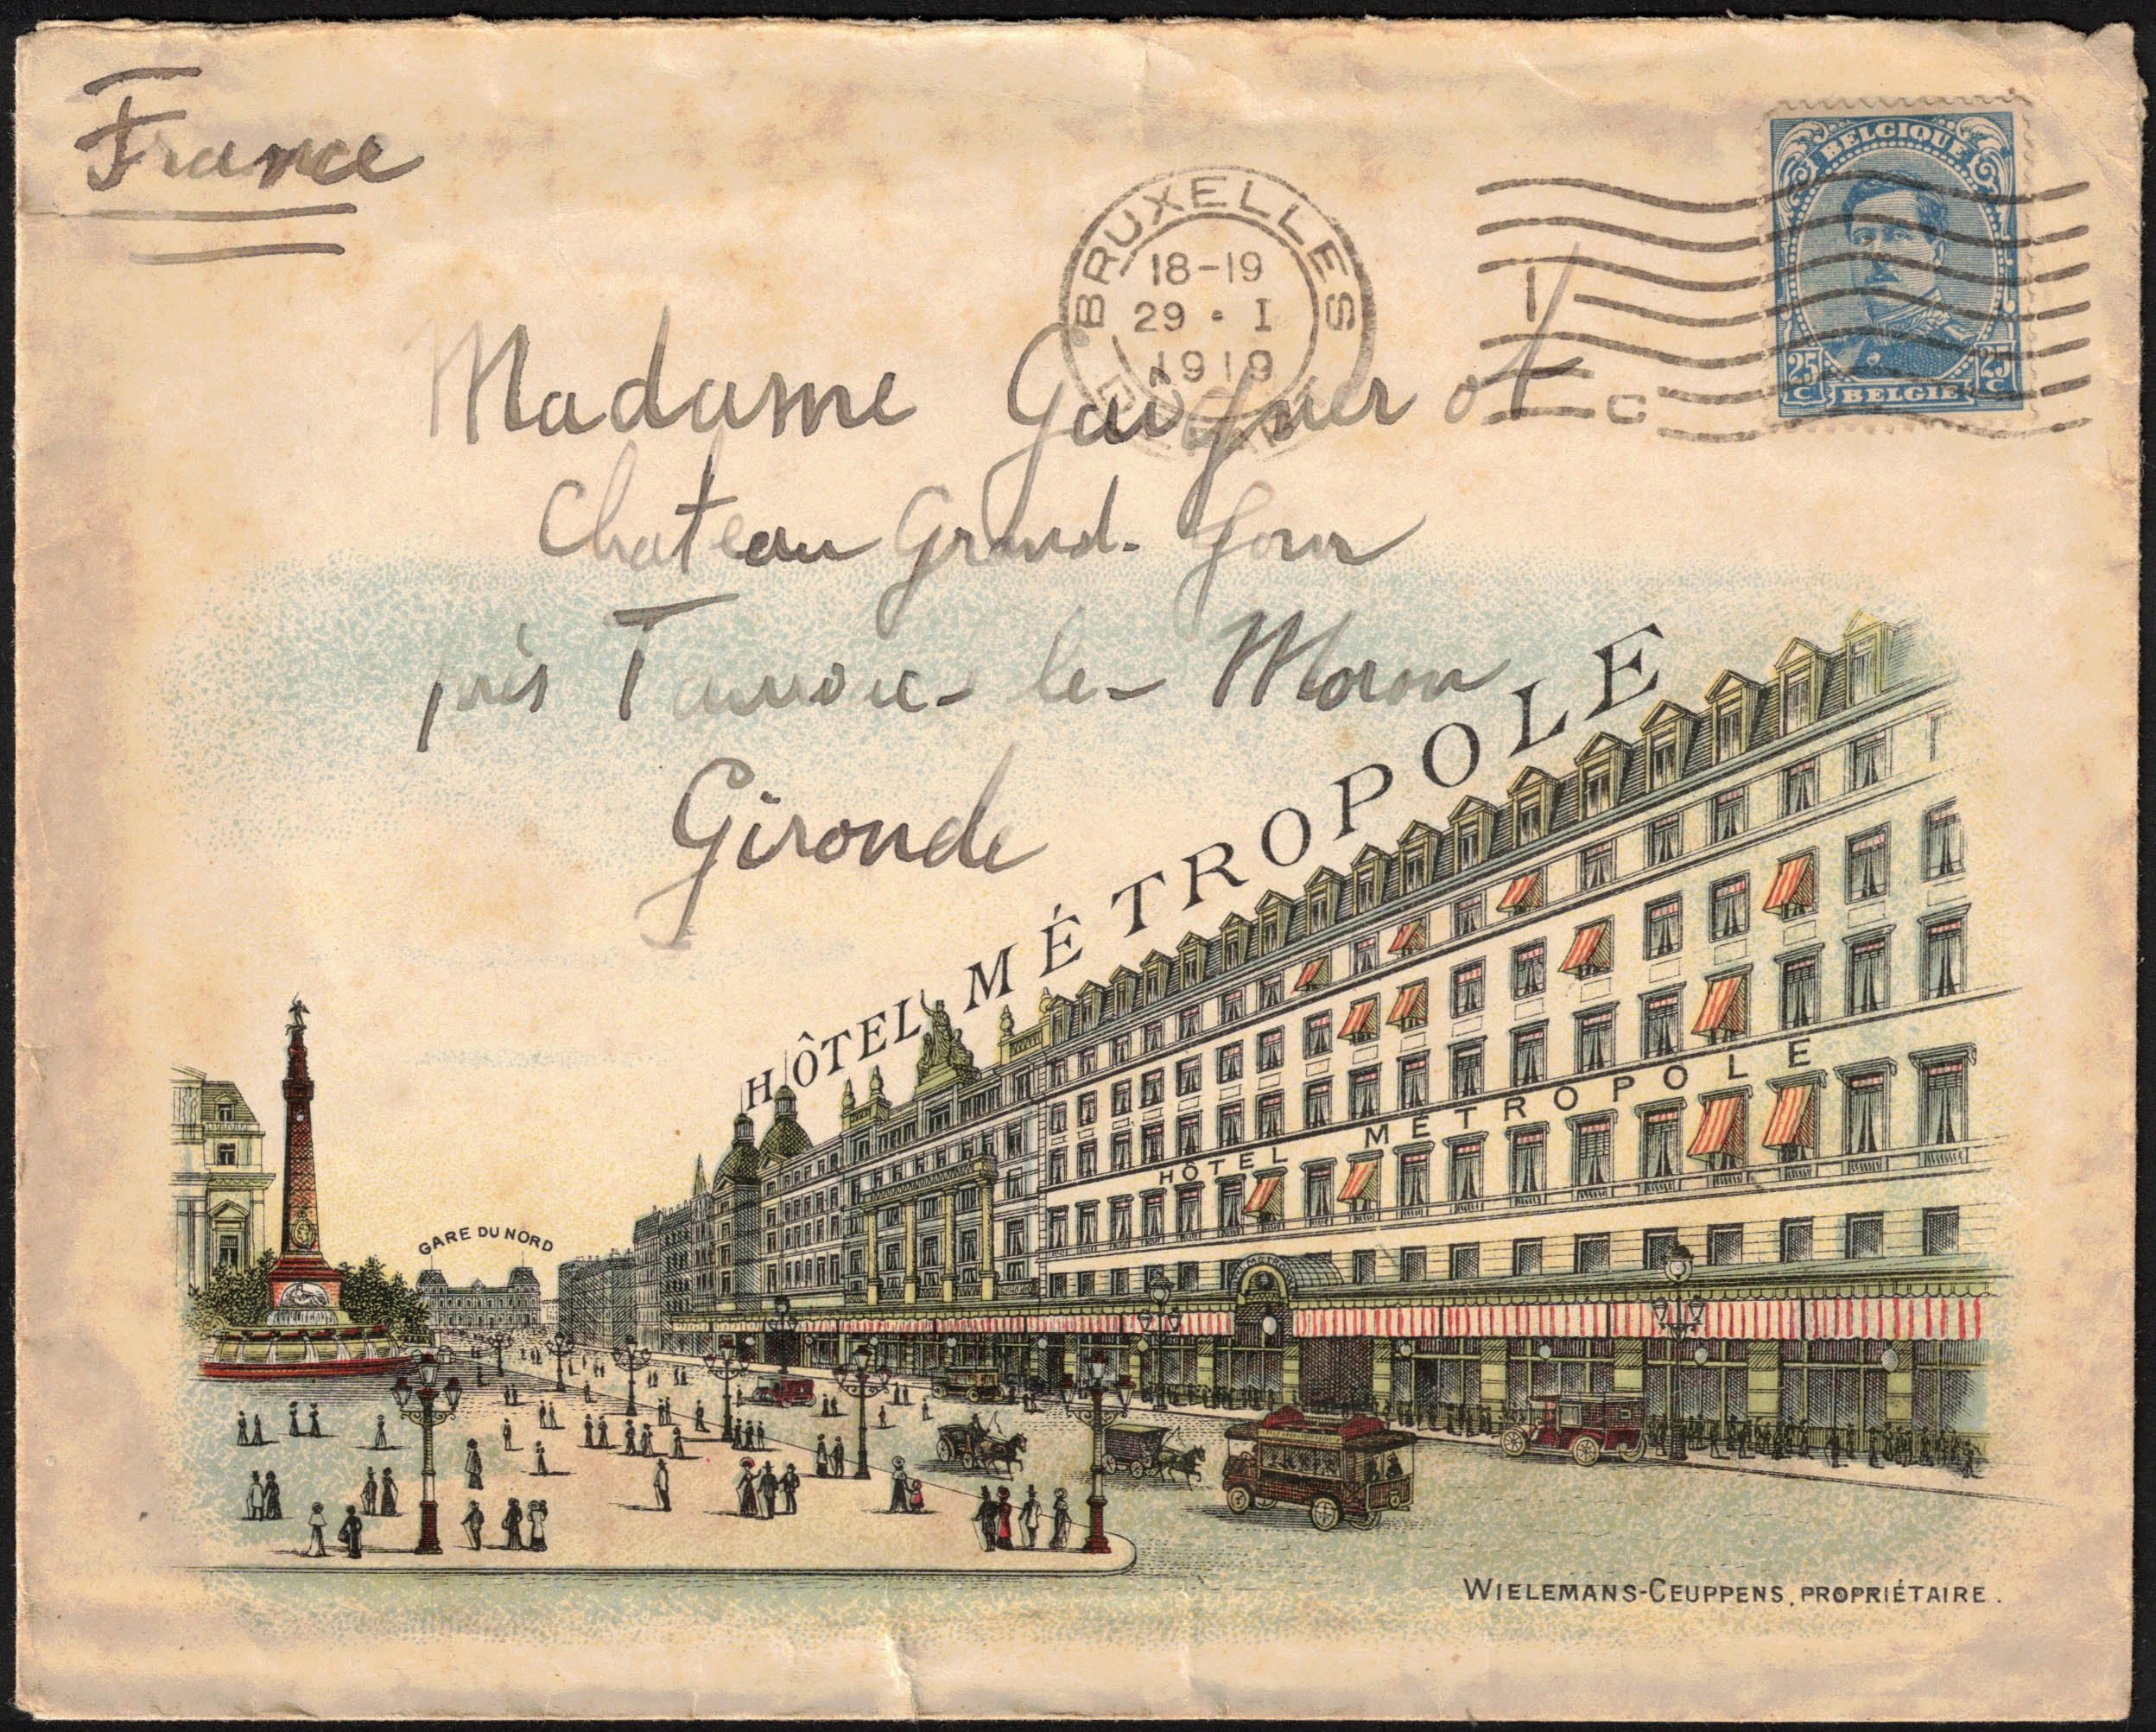 France
BRUXELLES
18-19
29 · I
1919
1
C
BELGIQUE
25 C
25 C
BELGIE
Madame
Chateau Grand-
près le-Moron
Gironde
HÔTEL MÉTROPOLE
HÔTEL MÉTROPOLE
GARE DU NORD
WIELEMANS-CEUPPENS, PROPRIÉTAIRE.